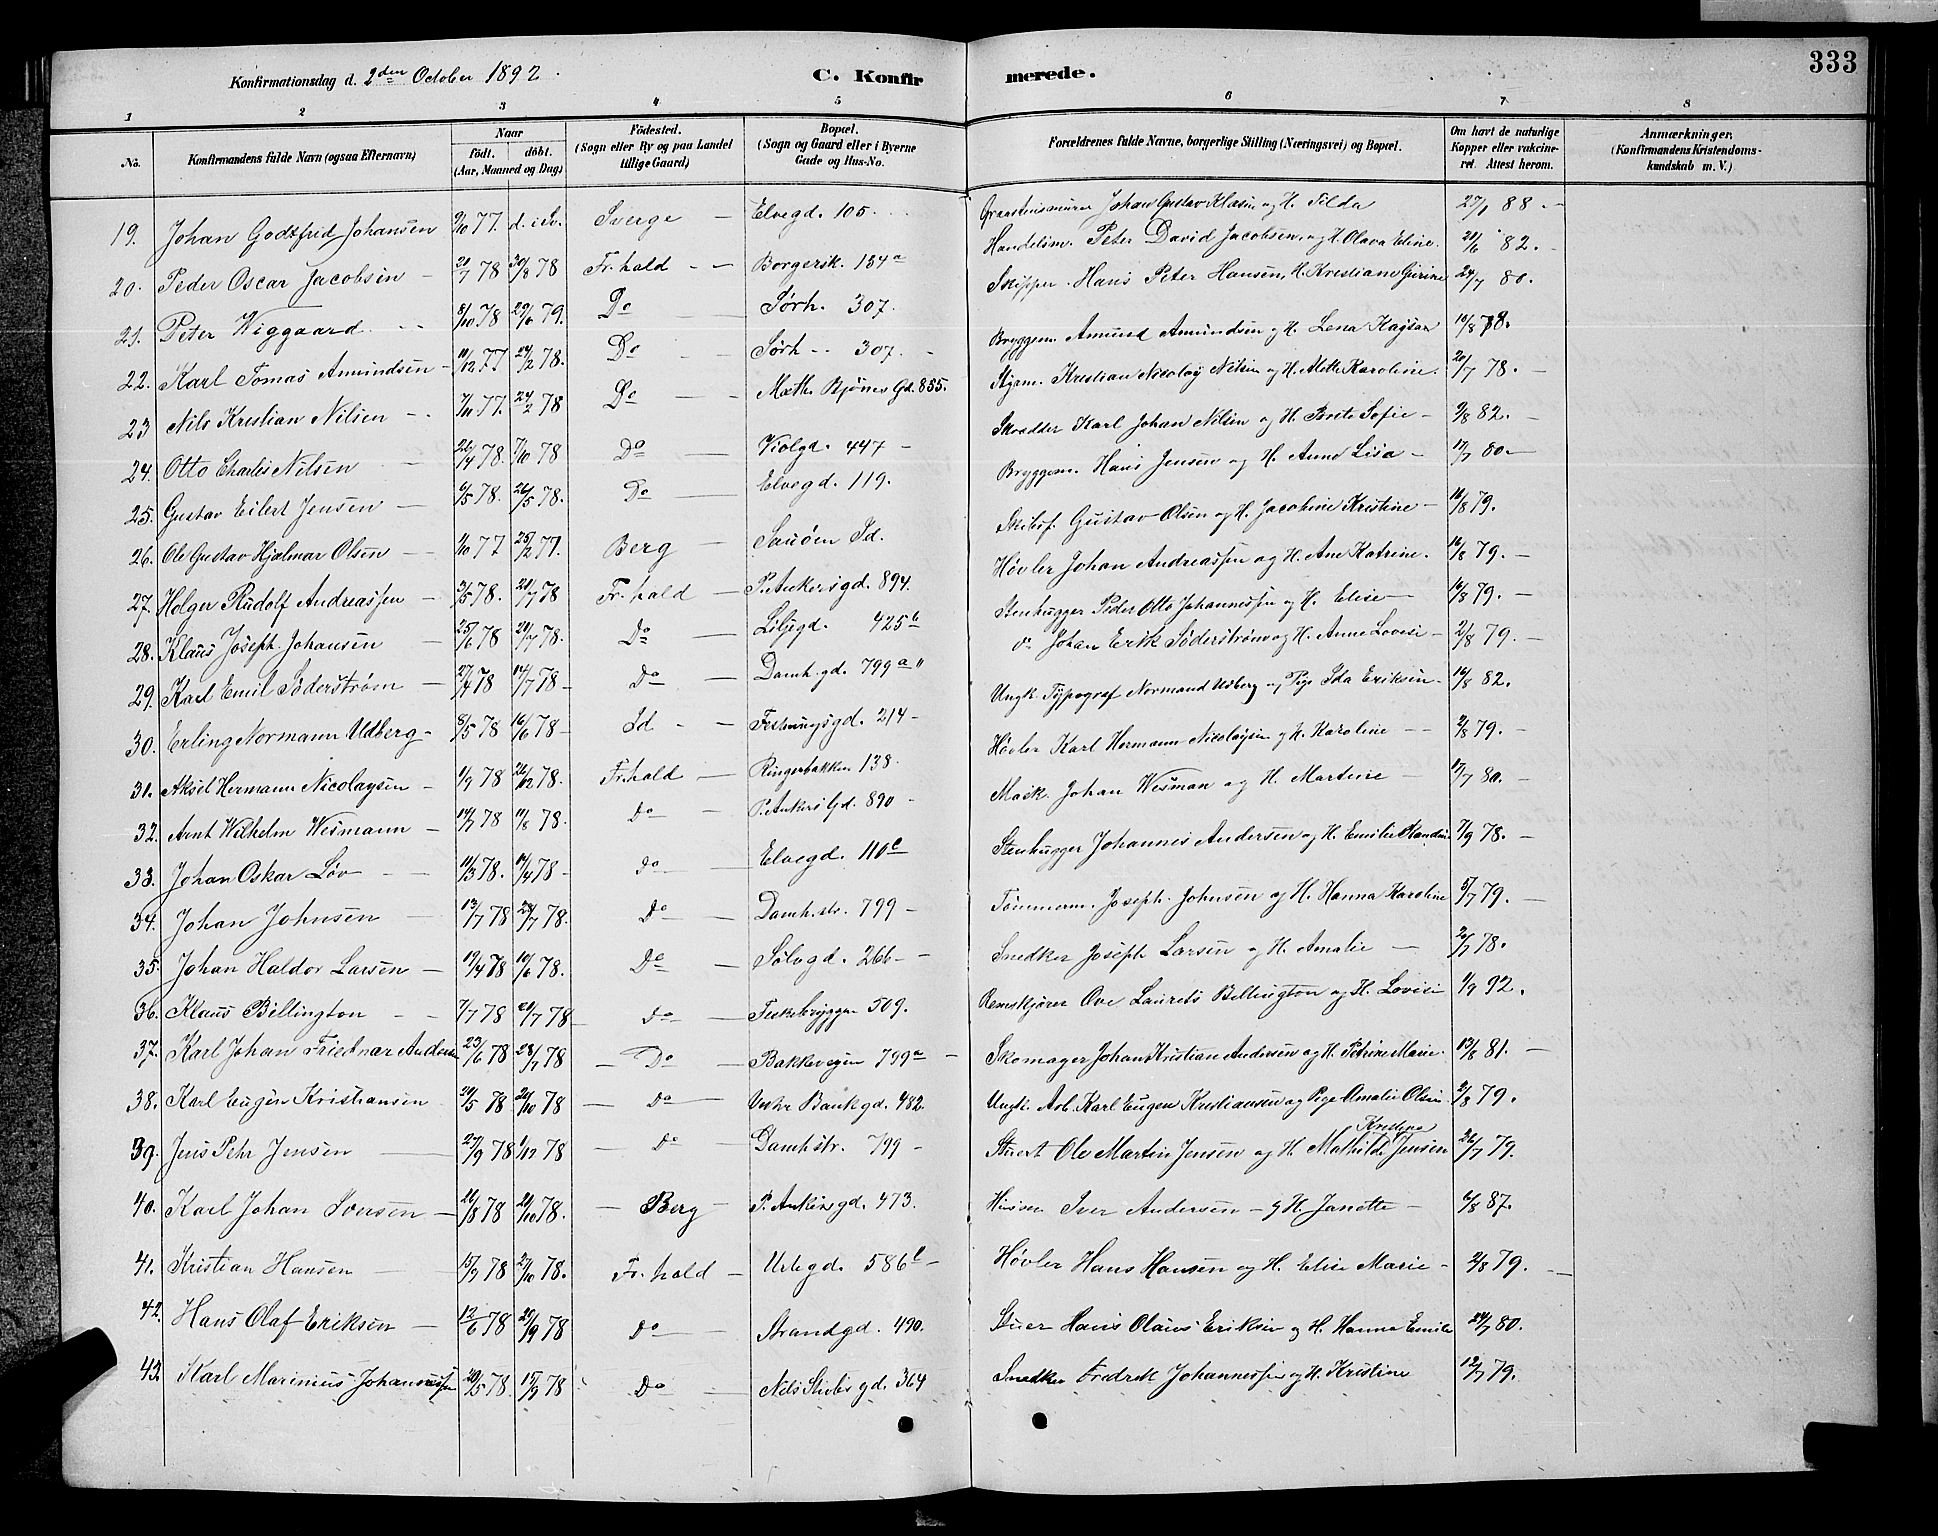 333
Konfirmationsdag d. 2den October 1892. C. Konfirmerede.
1 2 3 4 5 6 7 8
No. Konfirmandens fulde Navn (ogsaa Efternavn) Naar födt. döbt. (Aar, Maaned og Dag) Födested. (Sogn eller By og paa Landet tillige Gaard) Bopæl. (Sogn og Gaard eller i Byerne Gade og Hus-No. Forældrenes fulde Navne, borgerlige Stilling (Næringsvei) og Bopæl. Om havt de naturlige Kopper eller vakcineret. Attest herom. Anmærkninger, (Konfirmandens Kristendomskundskab m. V.)
19. Johan Godtfrid Johansen 9/10 77. d. i Sv. Sverge — Elvegd. 105. Graastensmurer Johan Gustav Klasen og H. Tilda 27/1 88. —
20. Peder Oscar Jacobsen — 20/7 78 30/8 78 Fr.hald — Borgersk. 134a Handelsm. Peter David Jacobsen, og H. Olava Eline. 21/6 82. —
21. Peter Wiggaard 8/10 78 29/6 79. Do Sørh. 307. Skipper Hans Peter Hansen, H. Kristiane Gurine 24/7 80.
22. Karl Tomas Amundsen — 11/12 77 24/2 78. Do Sørh — 307. Bryggem. Amund Amundsen og H. Lena Kajsa 16/8 78.
23 Nils Kristian Nilsen 7/11 77. 24/2 78 Do Math. Bjørns Gd. 855. Kristian Nicolay Nilsen og H. Mette Karoline. 20/7 78. —
24. Otto Charles Nilsen 26/4 78. 7/10 78 Do Violgd. 447 — Skrædder Karl Johan Nilsen og H. Brite Sofie — 9/8 82. —
25. Gustav Eilert Jensen — 6/5 78. 26/5 78. Do Elvegd. 119. Bryggem. Hans Jensen og H. Anne Lisa — 17/7 80. —
26. Ole Gustav Hjalmar Olsen — 1/10 77 25/2 77. Berg — Sauøen Id. Skibsf. Gustav Olsen og H. Jacobine Kristine — 16/8 79.
27. Holger Rudolf Andreassen — 3/5 78. 21/7 78 Fr.hald — P. Ankersgd. 894. Høvler Johan Andreassen og H. Ane Katrine. 16/8 79. —
28. Klaus Joseph Johansen — 25/6 78 21/7 78. Do Liljegd. 425b Stenhugger Peder Otto Johannessen og H. Elise — 16/8 79. —
29. Karl Emil Söderstrøm — 27/4 78 14/7 78 — Do Damh.gd. 799a " do Johan Erik Söderstrøm og H. Anne Lovise — 2/8 79. —
30. Erling Normann Udberg — 8/5 78 16/6 78 — Id — Festningsgd. 214 — Ungk. Typograf Normand Udberg og Pige Ida Eriksen — 16/8 82.
31. Aksel Hermann Nicolaysen — 1/9 78 26/12 78. Fr.hald — Ringerbakken 138. Høvler Karl Hermann Nicolaysen og H. Karoline — 2/8 79. —
32. Arnt Wilhelm Wesmann — 14/7 78 11/8 78. Do P. Ankers Gd. 890 — Mask. Johan Wesman og H. Martine — 17/7 80. —
33. Johan Oskar Löv — 11/3 78. 14/4 78 — Do Elvegd. 110b Stenhugger Johannes Andersen og H. Emilie 7/9 78. —
34. Johan Johnsen 13/7 78 28/7 78. Do Damh.str. 799 — Tømmerm. Joseph Johnsen og H. Hanna Karoline 5/7 79. —
35. Johan Haldor Larsen — 19/4 78 10/6 78. Do Sølvgd. 266 — Snedker Joseph Larsen og H. Amalie — 20/7 78.
36. Klaus Billington — 7/7 78 21/7 78 Do Fiskebryggen 509. Ove Laurets Billington og H. Lovise 1/9 92.
37. Karl Johan Friednar Andersen 23/6 78 28/7 78 — Do Bakkevegen 799a — Skomager Johan Kristian Andersen og H. Petrine Marie. 13/8 81. —
38. Karl Eugen Kristiansen 20/5 78 20/10 78 — Do Vestre Bankgd. 482. Ungk. Arb. Karl Eugen Kristiansen og Pige Amalie Olsen. 2/8 79.
39. Jens Petr Jensen — 27/9 78 1/12 78 — Do Damhstr. 799 — Stuert Ole Martin Jensen og H. Mathilde Kristine Jensen 26/7 79.
40. Karl Johan Iversen — 21/8 78 20/10 78. — Berg — P. Ankersgd. 473. Iver Andersen — og H. Janette — 6/8 87.
41. Kristian Hansen — 15/9 78 27/10 78. Fr.hald — Urtegd. 586b — Høvler Hans Hansen og H. Elise Marie — 2/8 79. —
42. Hans Olaf Eriksen — 12/6 78 29/9 78 Do Strandgd. 490. Stuer Hans Olaus Eriksen og H. Hanna Emilie 24/7 80.
43. Karl Marinius Johannessen 20/5 78 15/9 78 Do Nels Stubs gd. 364 Snedker Fredrek Johannessen og H. Kristine 12/7 79.